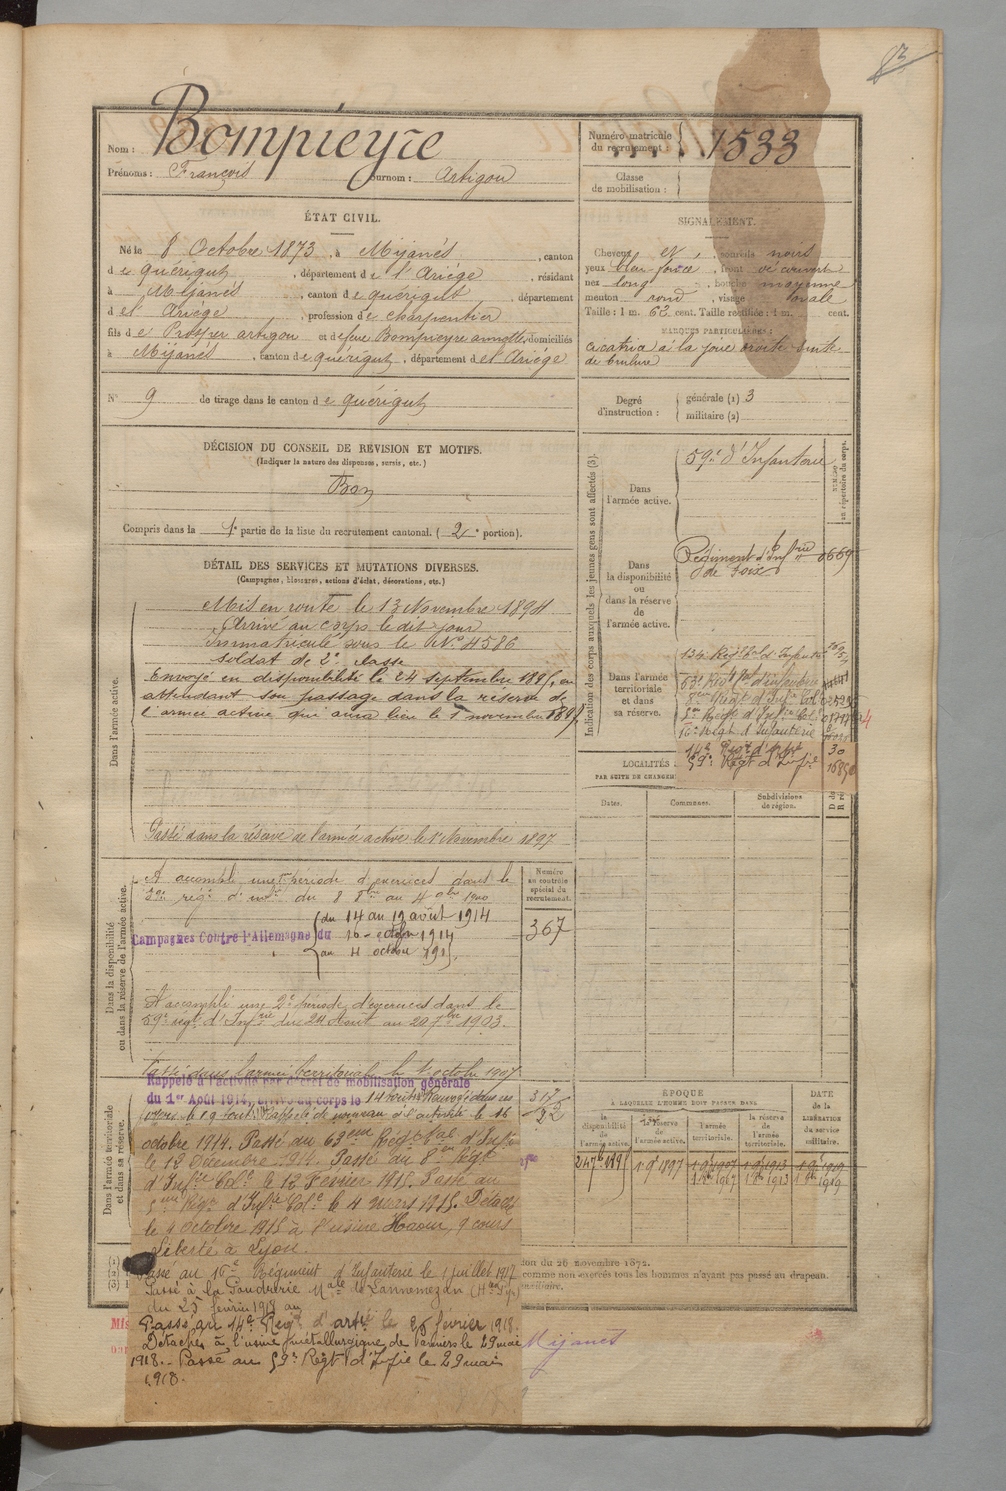 83
Nom : Bompieyre
Prénoms : François surnom : Artigou
Numéro matricule du recrutement : 1533
Classe de mobilisation :
ÉTAT CIVIL.
Né le 8 Octobre 1873, à Mijanès, canton
de Quérigut, département de l'Ariège, résidant
à Mijanès, canton de Quérigut, département
de l'Ariège, profession de charpentier
fils de Prosper artigou et de feue Bompieyre annette, domiciliés
à Mijanès, canton de Quérigut, département de l'Ariège
N° 9 de tirage dans le canton de Quérigut
SIGNALEMENT.
Cheveux et, sourcils noirs
yeux bleu foncé, front découvert
nez long, bouche moyenne
menton rond, visage ovale
Taille : 1 m. 62 cent. Taille rectifiée : 1 m. cent.
MARQUES PARTICULIÈRES :
cicatrice à la joue droite suite
de brulure
Degré d'instruction : générale (1) 3
militaire (2)
DÉCISION DU CONSEIL DE REVISION ET MOTIFS.
(Indiquer la nature des dispenses, sursis, etc.)
Bon
Compris dans la 1e partie de la liste du recrutement cantonal. ( 2e portion).
DÉTAIL DES SERVICES ET MUTATIONS DIVERSES.
(Campagnes, blessures, actions d'éclat, décorations, etc.)
Dans l'armée active.
Mis en route le 13 Novembre 1894
Arrivé au corps le dit jour
Immatriculé sous le N° 4586
soldat de 2e classe
Envoyé en disponibilité le 24 septembre 1897, en
attendant son passage dans la réserve de
l'armée active qui aura lieu le 1 novembre 1897
Passé dans la réserve de l'armée active le 1er Novembre 1897
Indication des corps auxquels les jeunes gens sont affectés (3).
NUMÉRO au répertoire du corps.
Dans l'armée active.
59e d'Infanterie
Dans la disponibilité ou dans la réserve de l'armée active.
Régiment d'Infrie 0669
de Foix
Dans l'armée territoriale et dans sa réserve.
134e Régt tal d'Infrie
63e Régt tal d'infanterie
8eme Régt d'Infie Col
5me Régt d'Infie Col
16e Régt d'Infanterie
14e Régt d'artie 30
59e Régt d'Infie
LOCALITÉS
PAR SUITE DE CHANGEM
Dates. Communes. Subdivisions de région.
Dans la disponibilité ou dans la réserve de l'armée active.
A accompli une 1re période d'exercices dans le
59e régt d'inf. du 8 8bre au 4 9bre 1900
Campagnes Contre l'Allemagne du
du 14 au 19 août 1914
16 octobre 1914
au 4 octobre 1915,
A accompli une 2e période d'exercices dans le
59e régt d'Infrie du 24 Août au 20 7bre 1903.
Passé dans l'armée territoriale le 1er octobre 1907
Numéro au contrôle spécial du recrutement.
367
317/22
Dans l'armée territoriale et dans sa réserve.
Rappelé à l'activité par décret de mobilisation générale
du 1er Août 1914, arrivé au corps le 14 août. Renvoyé dans ses
foyers le 19 août. Rappelé de nouveau à l'activité le 16
octobre 1914. Passé au 63eme Régt tal d'Infie
le 12 Décembre 1914. Passé au 8eme Régt
d'Infie Cole le 12 Février 1915. Passé au
5me Régt d'Infie Cole le 4 mars 1915. Détaché
le 4 octobre 1915 à l'usine Haour, 9 cours
Liberté à Lyon.
Passé au 16e Régiment d'Infanterie le 1 juillet 1917
Passé à la Poudrerie Nale de Lannemezan (Htes Pyr)
du 25 février 1918 au
Passé au 14e Régt d'artie le 25 février 1918.
Détaché à l'usine métallurgique de Pamiers le 29 mai
1918. - Passé au 59e Régt d'Infie le 29 mai
1918.
ÉPOQUE
À LAQUELLE L'HOMME DOIT PASSER DANS
la disponibilité de l'armée active. la réserve de l'armée active. l'armée territoriale. la réserve de l'armée territoriale.
DATE de la LIBÉRATION du service militaire.
24 7bre 1897 1 9bre 1897
(1)
(2)
(3)
ion du 26 novembre 1872.
comme non exercés tous les hommes n'ayant pas passé au drapeau.
Mijanès